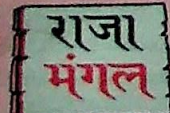 राजा
मंगल